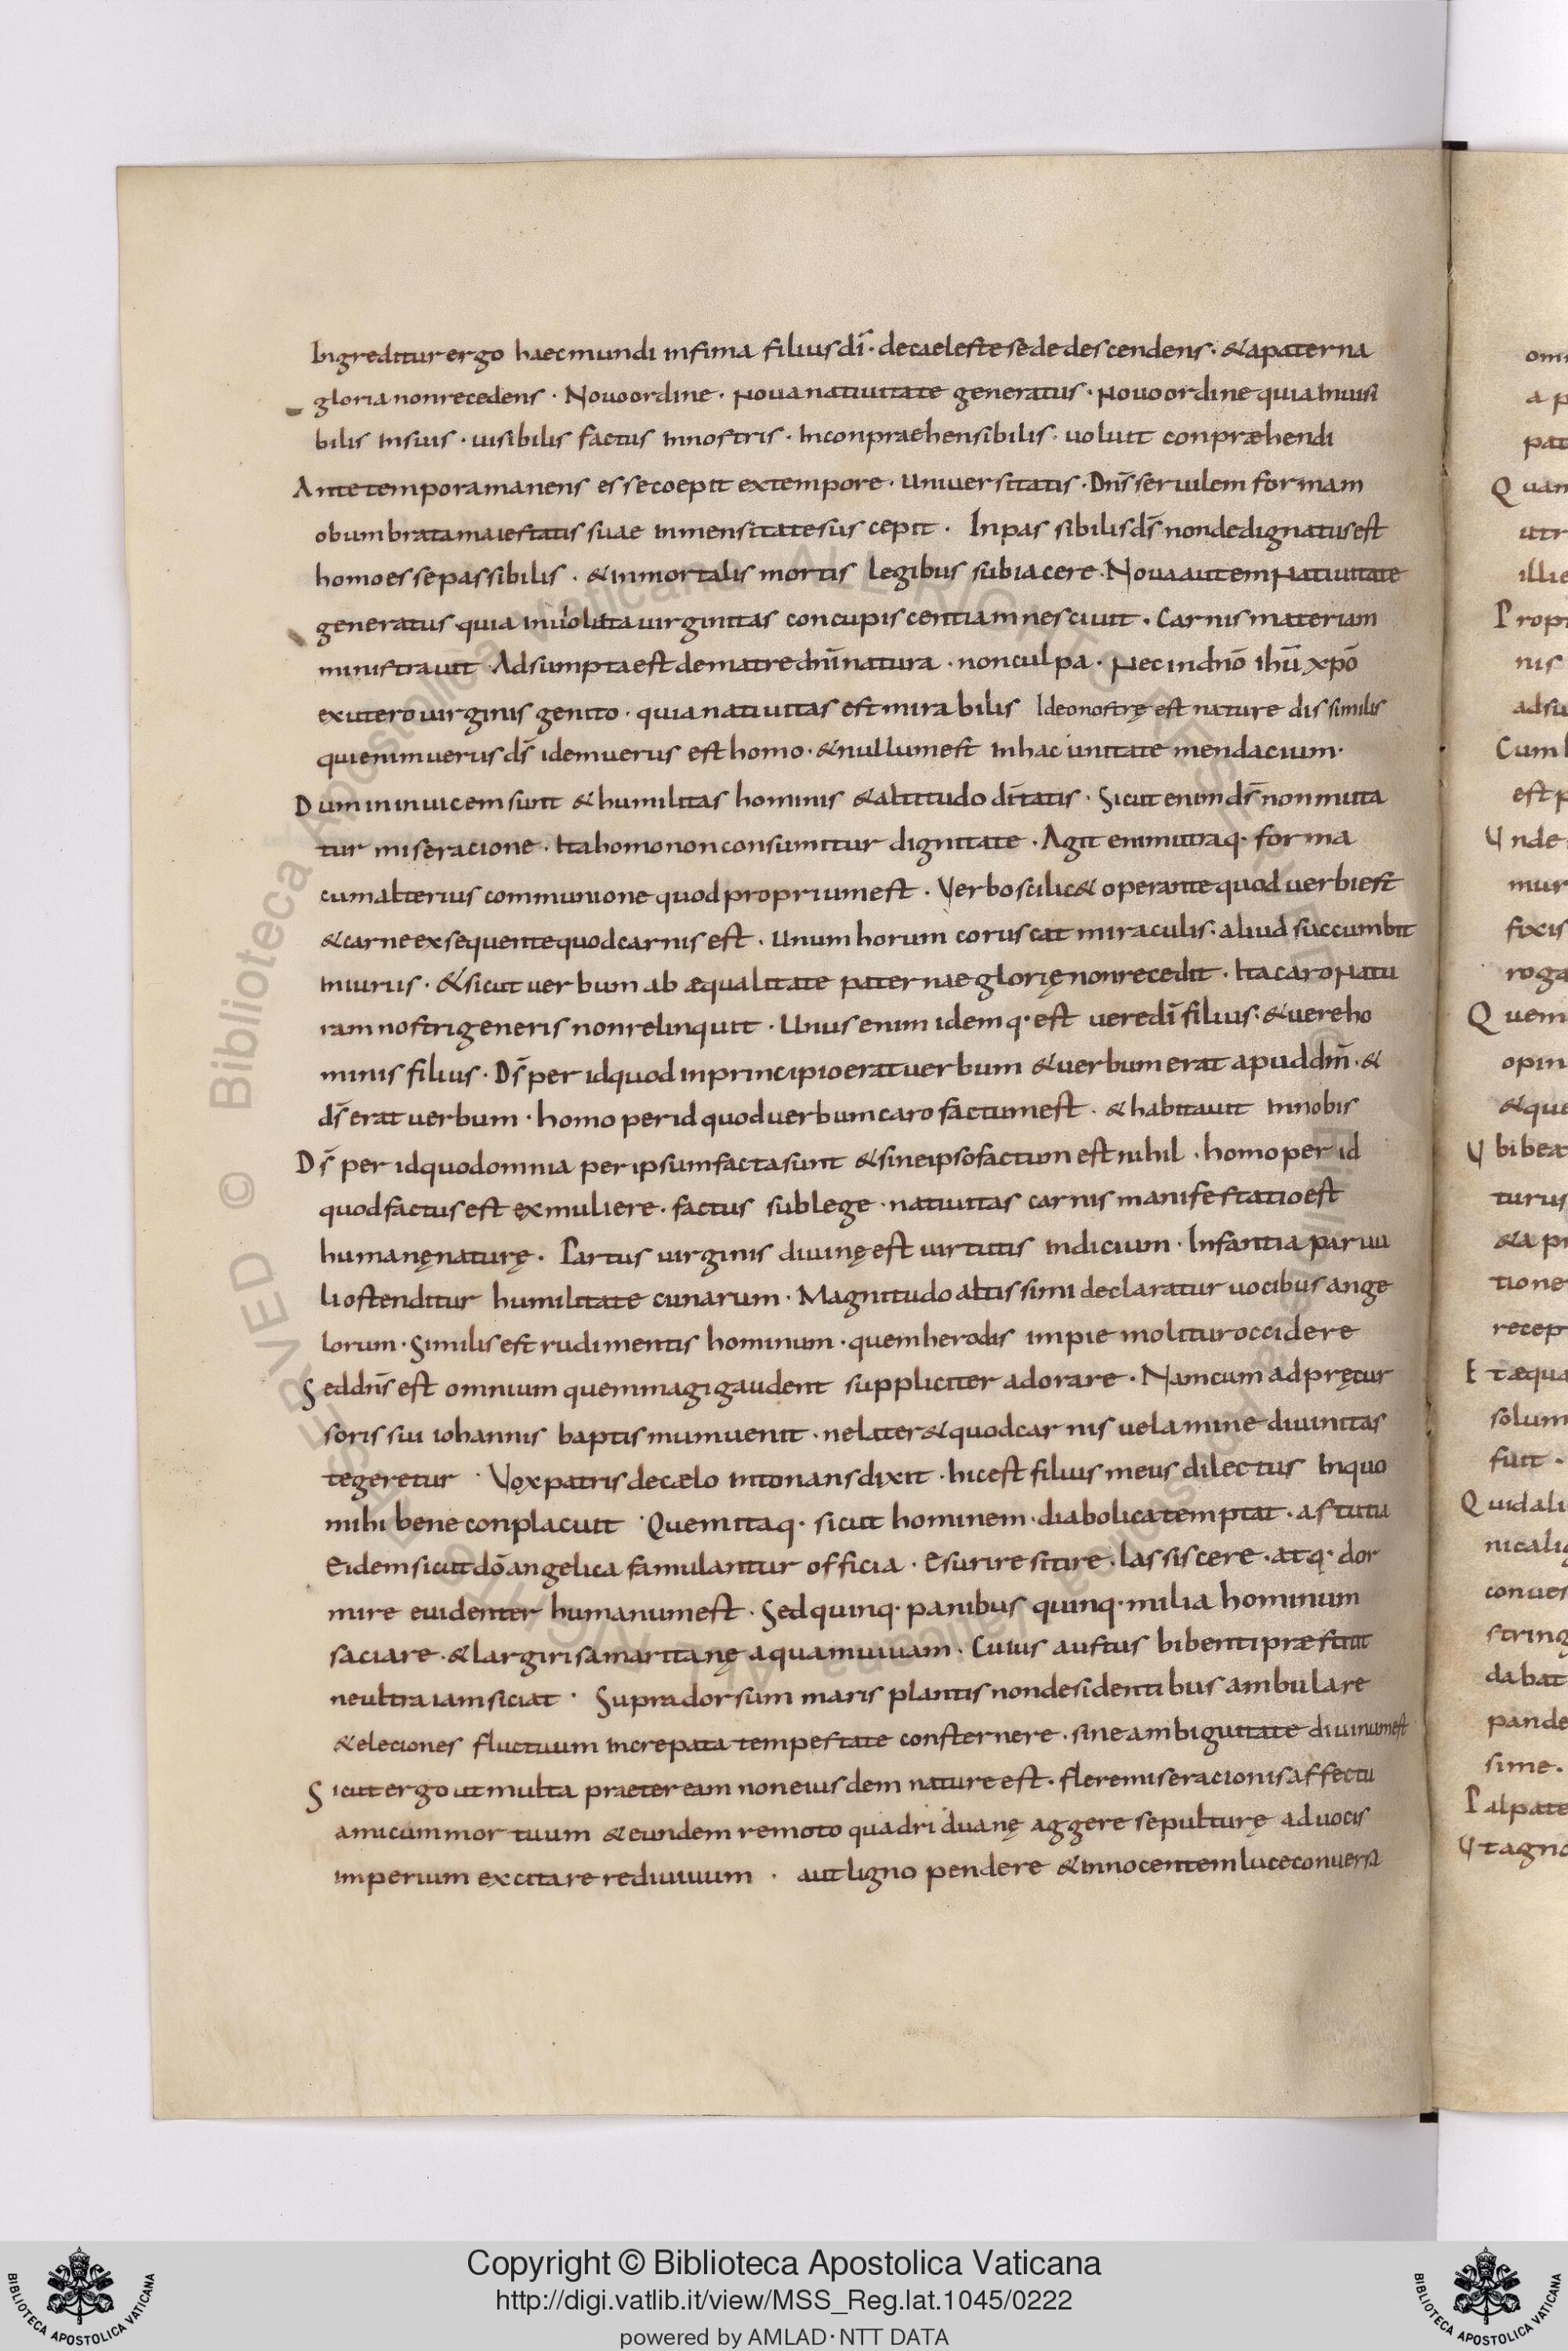 Ingreditur ergo haec mundi infima filius dī · de caeleste sede descendens · & a paterna
gloria non recedens · Novo ordine · nova nativitate generatus · novo ordine quia invisi
bilis in suis · visibilis factus in nostris · Inconpraehensibilis · voluit conpræhendi
Ante tempora manens esse coepit ex tempore · universitatis · Dn̄s servilem formam
obumbrata maiestatis suae inmensitate suscepit · Inpassibilis ds̄ non dedignatus est
homo esse passibilis · & inmortalis mortis legibus subiacere · Nova autem nativitate
generatus quia inviolata virginitas concupiscentiam nescivit · Carnis materiam
ministravit · Adsumpta est de matre dnī natura · non culpa · nec in dn̄o ihū xpō
ex utero virginis genito · quia nativitas est mirabilis Ideo nostrę est nature dissimilis
qui enim verus ds̄ idem verus est homo · & nullum est in hac unitate mendacium ·
Dum in invicem sunt & humilitas hominis & altitudo dītatis · Sicut enim ds̄ non muta
tur miseracione · Ita homo non consumitur dignitate · Agit enim utraq· forma
cum alterius communione quod proprium est · Verbo scilic& operante quod verbi est
& carne exsequente quod carnis est · Unum horum coruscat miraculis · aliud succumbit
iniuriis · & sicut verbum ab æqualitate paternae glorię non recedit · Ita caro natu
ram nostri generis non relinquit · Unus enim idemq· est vere dī filius · & vere ho
minis filius · Ds̄ per id quod in principio erat verbum & verbum erat apud dm̄ · &
ds̄ erat verbum · homo per id quod verbum caro factum est · & habitavit in nobis
Ds̄ per id quod omnia per ipsum facta sunt & sine ipso factum est nihil · homo per id
quod factus est ex muliere · factus sub lege · nativitas carnis manifestatio est
humanę naturę · Partus virginis divinę est virtutis indicium · Infantia parvu
li ostenditur humilitate cunarum · Magnitudo altissimi declaratur vocibus ange
lorum · Similis est rudimentis hominum · quem herodis impie molitur occidere
Sed dn̄s est omnium quem magi gaudent suppliciter adorare · Nam cum ad pręcur
soris sui iohannis baptismum venit · ne later& quod carnis velamine divinitas
tegeretur · Vox patris de cælo intonans dixit · hic est filius meus dilectus in quo
mihi bene conplacuit · Quem itaq· sicut hominem · diabolica temptat · astutia
Eidem sicut dō angelica famulantur officia · Esurire sitire · lassiscere · atq· dor
mire evidenter humanum est · Sed quinq· panibus quinq· milia hominum
saciare · & largiri samaritanę aquam vivam · Cuius austus bibenti præstitit
ne ultra iam siciat · Supra dorsum maris plantis non desidentibus ambulare
& eleciones fluctuum increpata tempestate consternere · sine ambiguitate divinum est
Sicut ergo ut multa praeteream non eiusdem nature est · flere miseracionis affectu
amicum mortuum & eundem remoto quadriduanę aggere sepulturę ad vocis
imperium excitare redivivum · aut ligno pendere & in nocentem luce conversa
Copyright © Biblioteca Apostolica Vaticana
http://digi.vatlib.it/view/MSS_Reg.lat.1045/0222
powered by AMLAD·NTT DATA